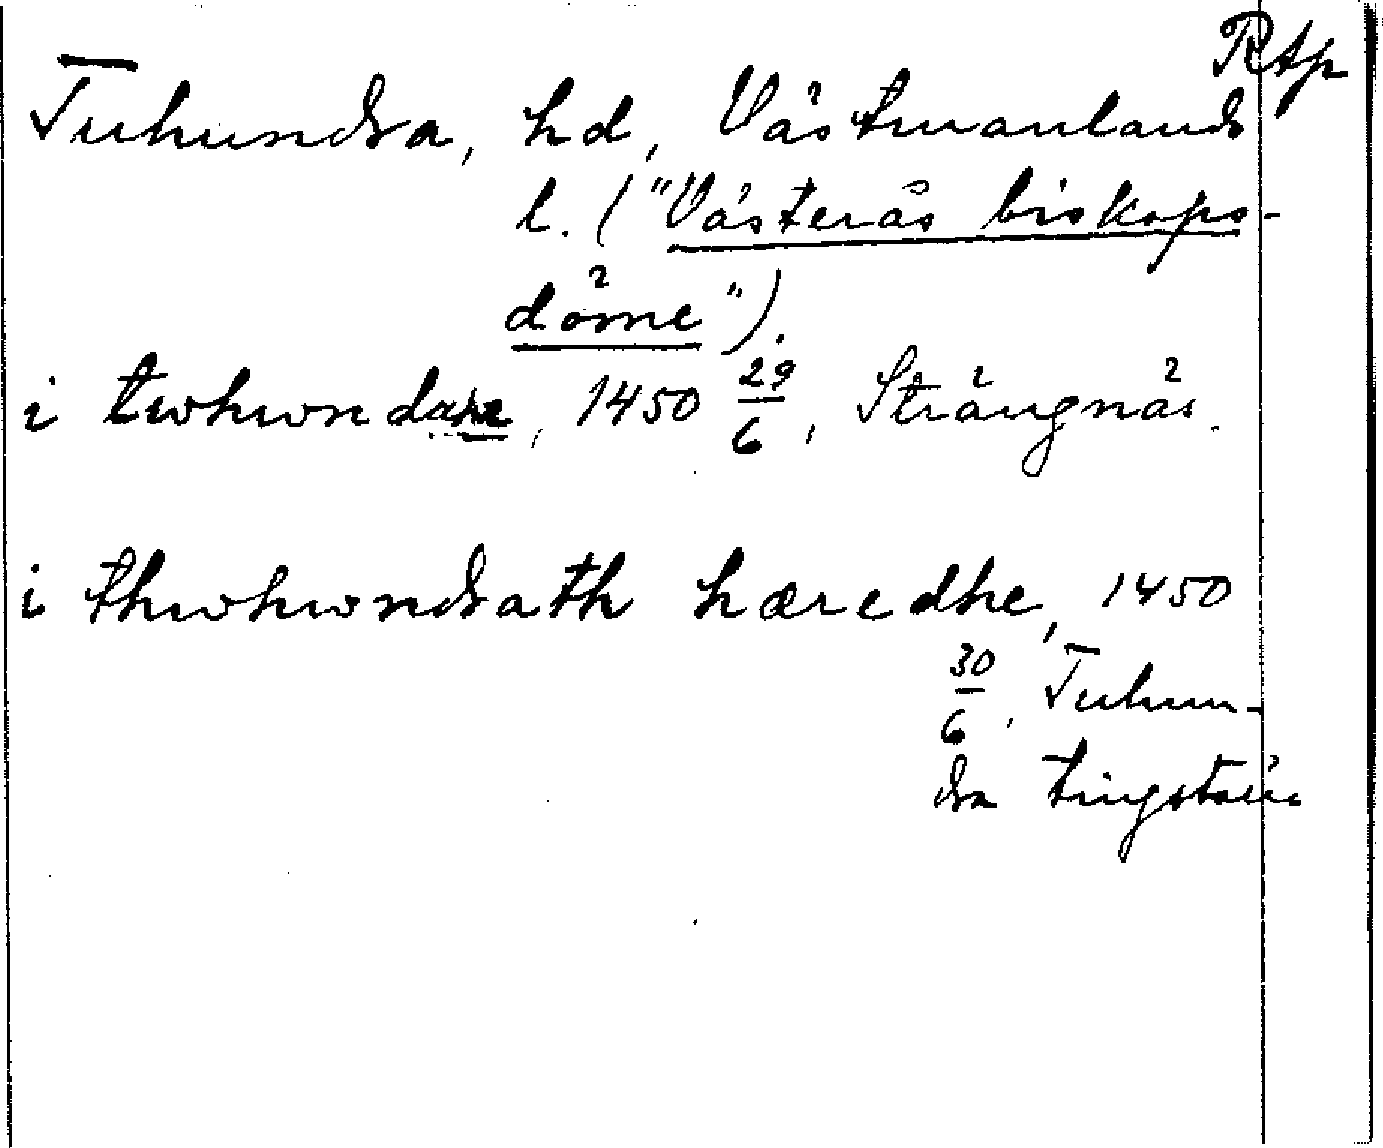 Rtp
Tuhundra, hd, Västmanlands
l. ("Västerås biskops-
döme").
i twhwndare, 1450 29/6, Strängnäs.
i thwhwndrath hæredhe, 1450
30/6, Tuhun-
dra tingställe